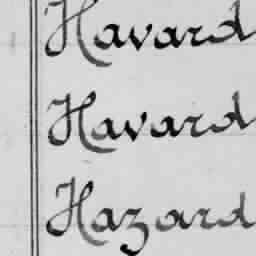 Havard
Havard
Hazard